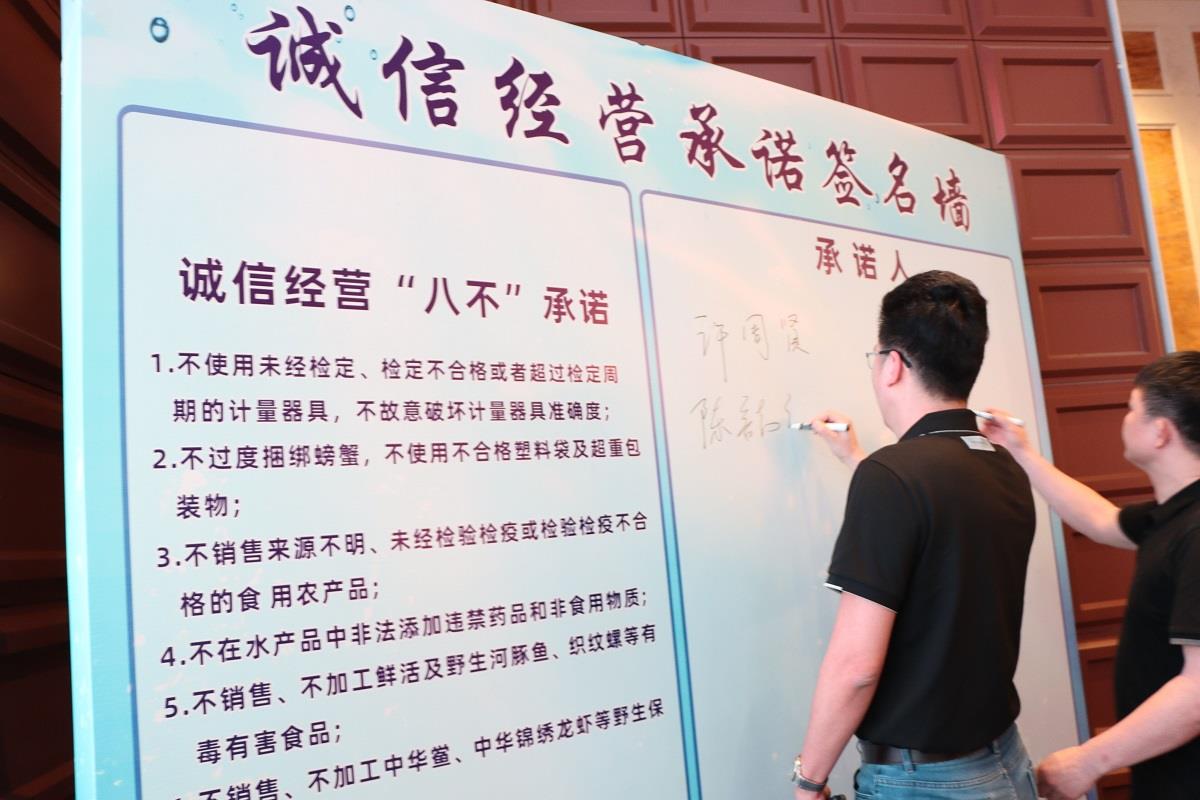 诚信经营承诺签名墙
诚信经营“八不”承诺
1.不使用未经检定、检定不合格或者超过检定周
期的计量器具，不故意破坏计量器具准确度；
2.不过度捆绑螃蟹，不使用不合格塑料袋及超重包
装物；
3.不销售来源不明、未经检验检疫或检验检疫不合
格的食用农产品；
4.不在水产品中非法添加违禁药品和非食用物质；
5.不销售、不加工鲜活及野生河豚鱼、织纹螺等有
毒有害食品；
不销售、不加工中华鲎、中华锦绣龙虾等野生保
承诺人
许周贤
陈